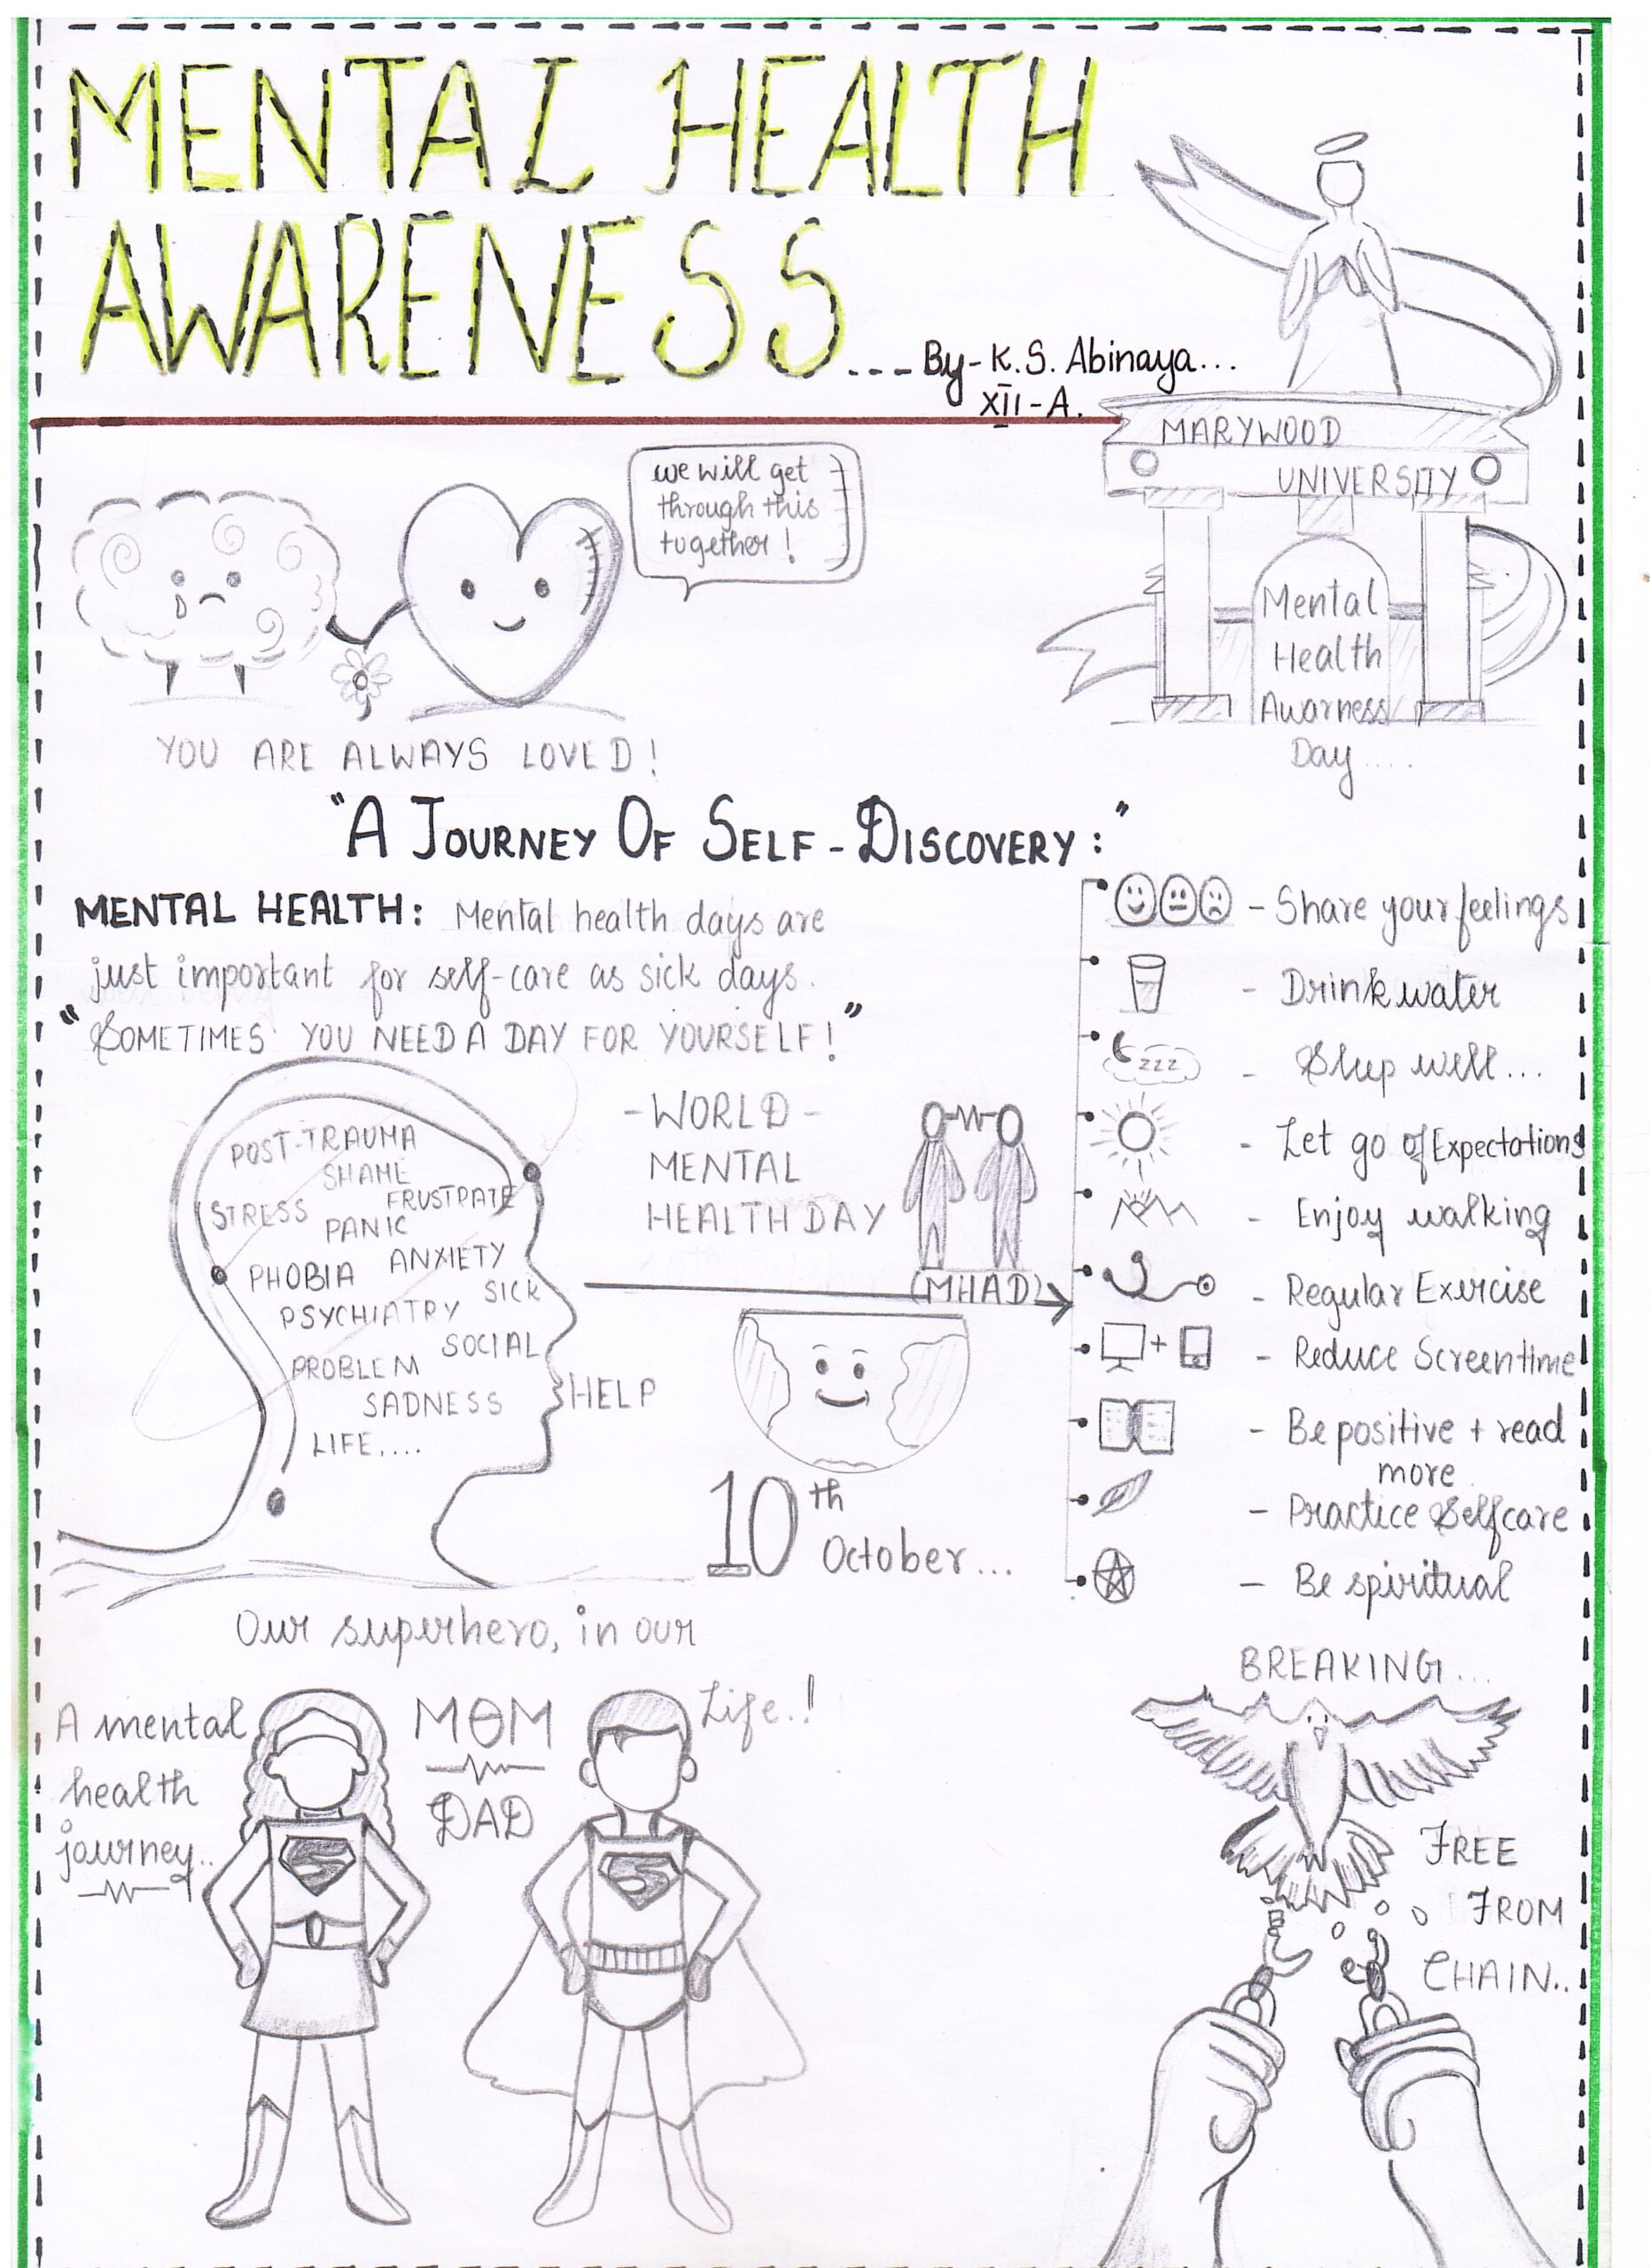 MENTAL HEALTH
AWARENESS...
By- K.S. Abinaya...
XII-A.
MARYWOOD
UNIVERSITY
we will get
through this
together!
Mental
Health
Awarness
Day....
YOU ARE ALWAYS LOVED!
"A JOURNEY OF SELF-DISCOVERY:"
MENTAL HEALTH: Mental health days are
just important for self-care as sick days.
"SOMETIMES YOU NEED A DAY FOR YOURSELF!"
POST-TRAUMA
SHAME
STRESS FRUSTRATE
PANIC
PHOBIA ANXIETY
SICK
PSYCHIATRY
SOCIAL
PROBLEM
SADNESS
LIFE,....
HELP
-WORLD-
MENTAL
HEALTH DAY
(MHAD)
10th
October...
- Share your feelings
- Drink water
zzz
- Sleep well...
- Let go of Expectations
- Enjoy walking
- Regular Exercise
+ - Reduce Screentime
- Be positive + read
more.
- Practice Selfcare
- Be spiritual
Our superhero, in our
Life..!
A mental
health
journey..
MOM
DAD
S
S
BREAKING...
FREE
FROM
CHAIN..